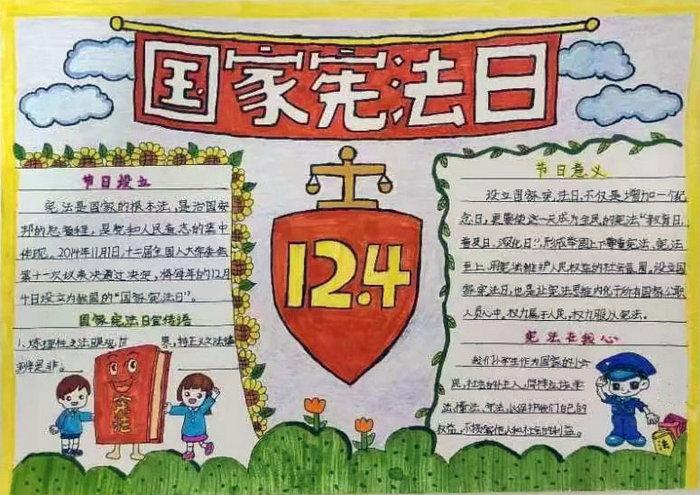 国家宪法日
节日设立
宪法是国家的根本法，是治国安
邦的总章程，是党和人民意志的集中
体现。2014年11月1日，十二届全国人大常委会
第十一次以表决通过决定，将每年的12月
4日设立为我国的“国家宪法日”。
国家宪法日宣传语
1、炼理性之法眼观世
界，持正义之法槌
判是非。
宪法
12.4
节日意义
设立国家宪法日，不仅是增加一个纪
念日，更要使这一天成为全民的宪法“教育日、
普及日、深化日”，形成举国上下尊重宪法、宪法
至上、用宪法维护人民权益的社会氛围。设立国
家宪法日，也是让宪法思维内化于所有国家公职
人员心中。权力属于人民，权力服从宪法。
宪法在我心
我们小学生作为国家的小公
民，社会的小主人，同样应该学
法、懂法、守法，以保护我们自己的
权益，不损害他人和社会的利益。
法